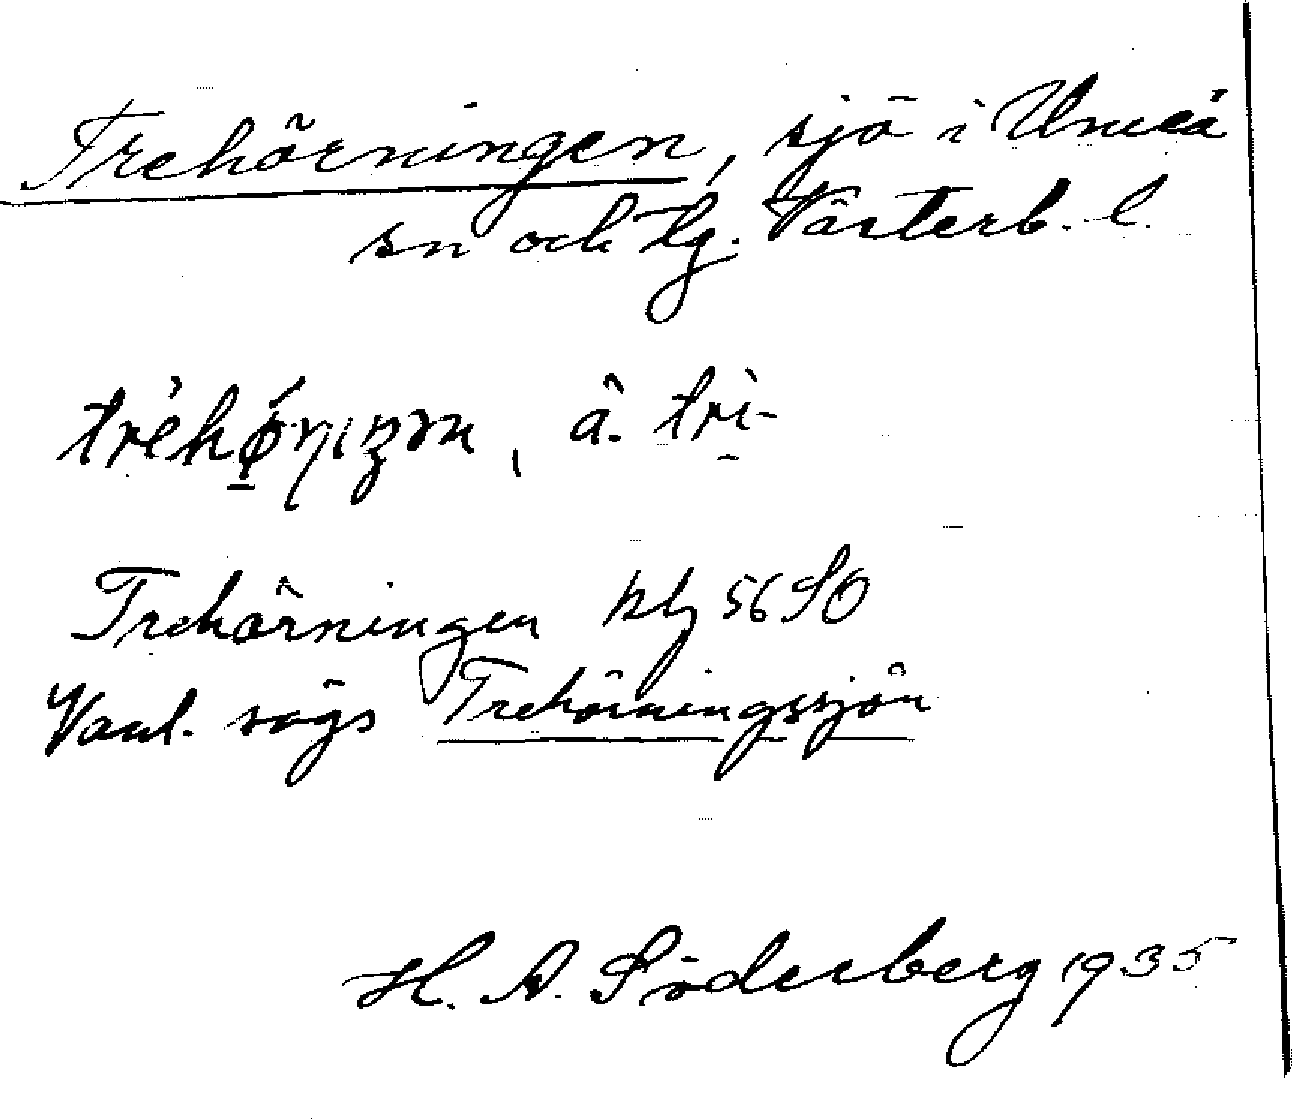 Trehörningen, sjö i Umeå
sn och tg. Västerb. l.
ä. tri-
Trehörningen kbl 56 SO
Vanl. sägs Trehörningssjön
H. A. Söderberg 1935